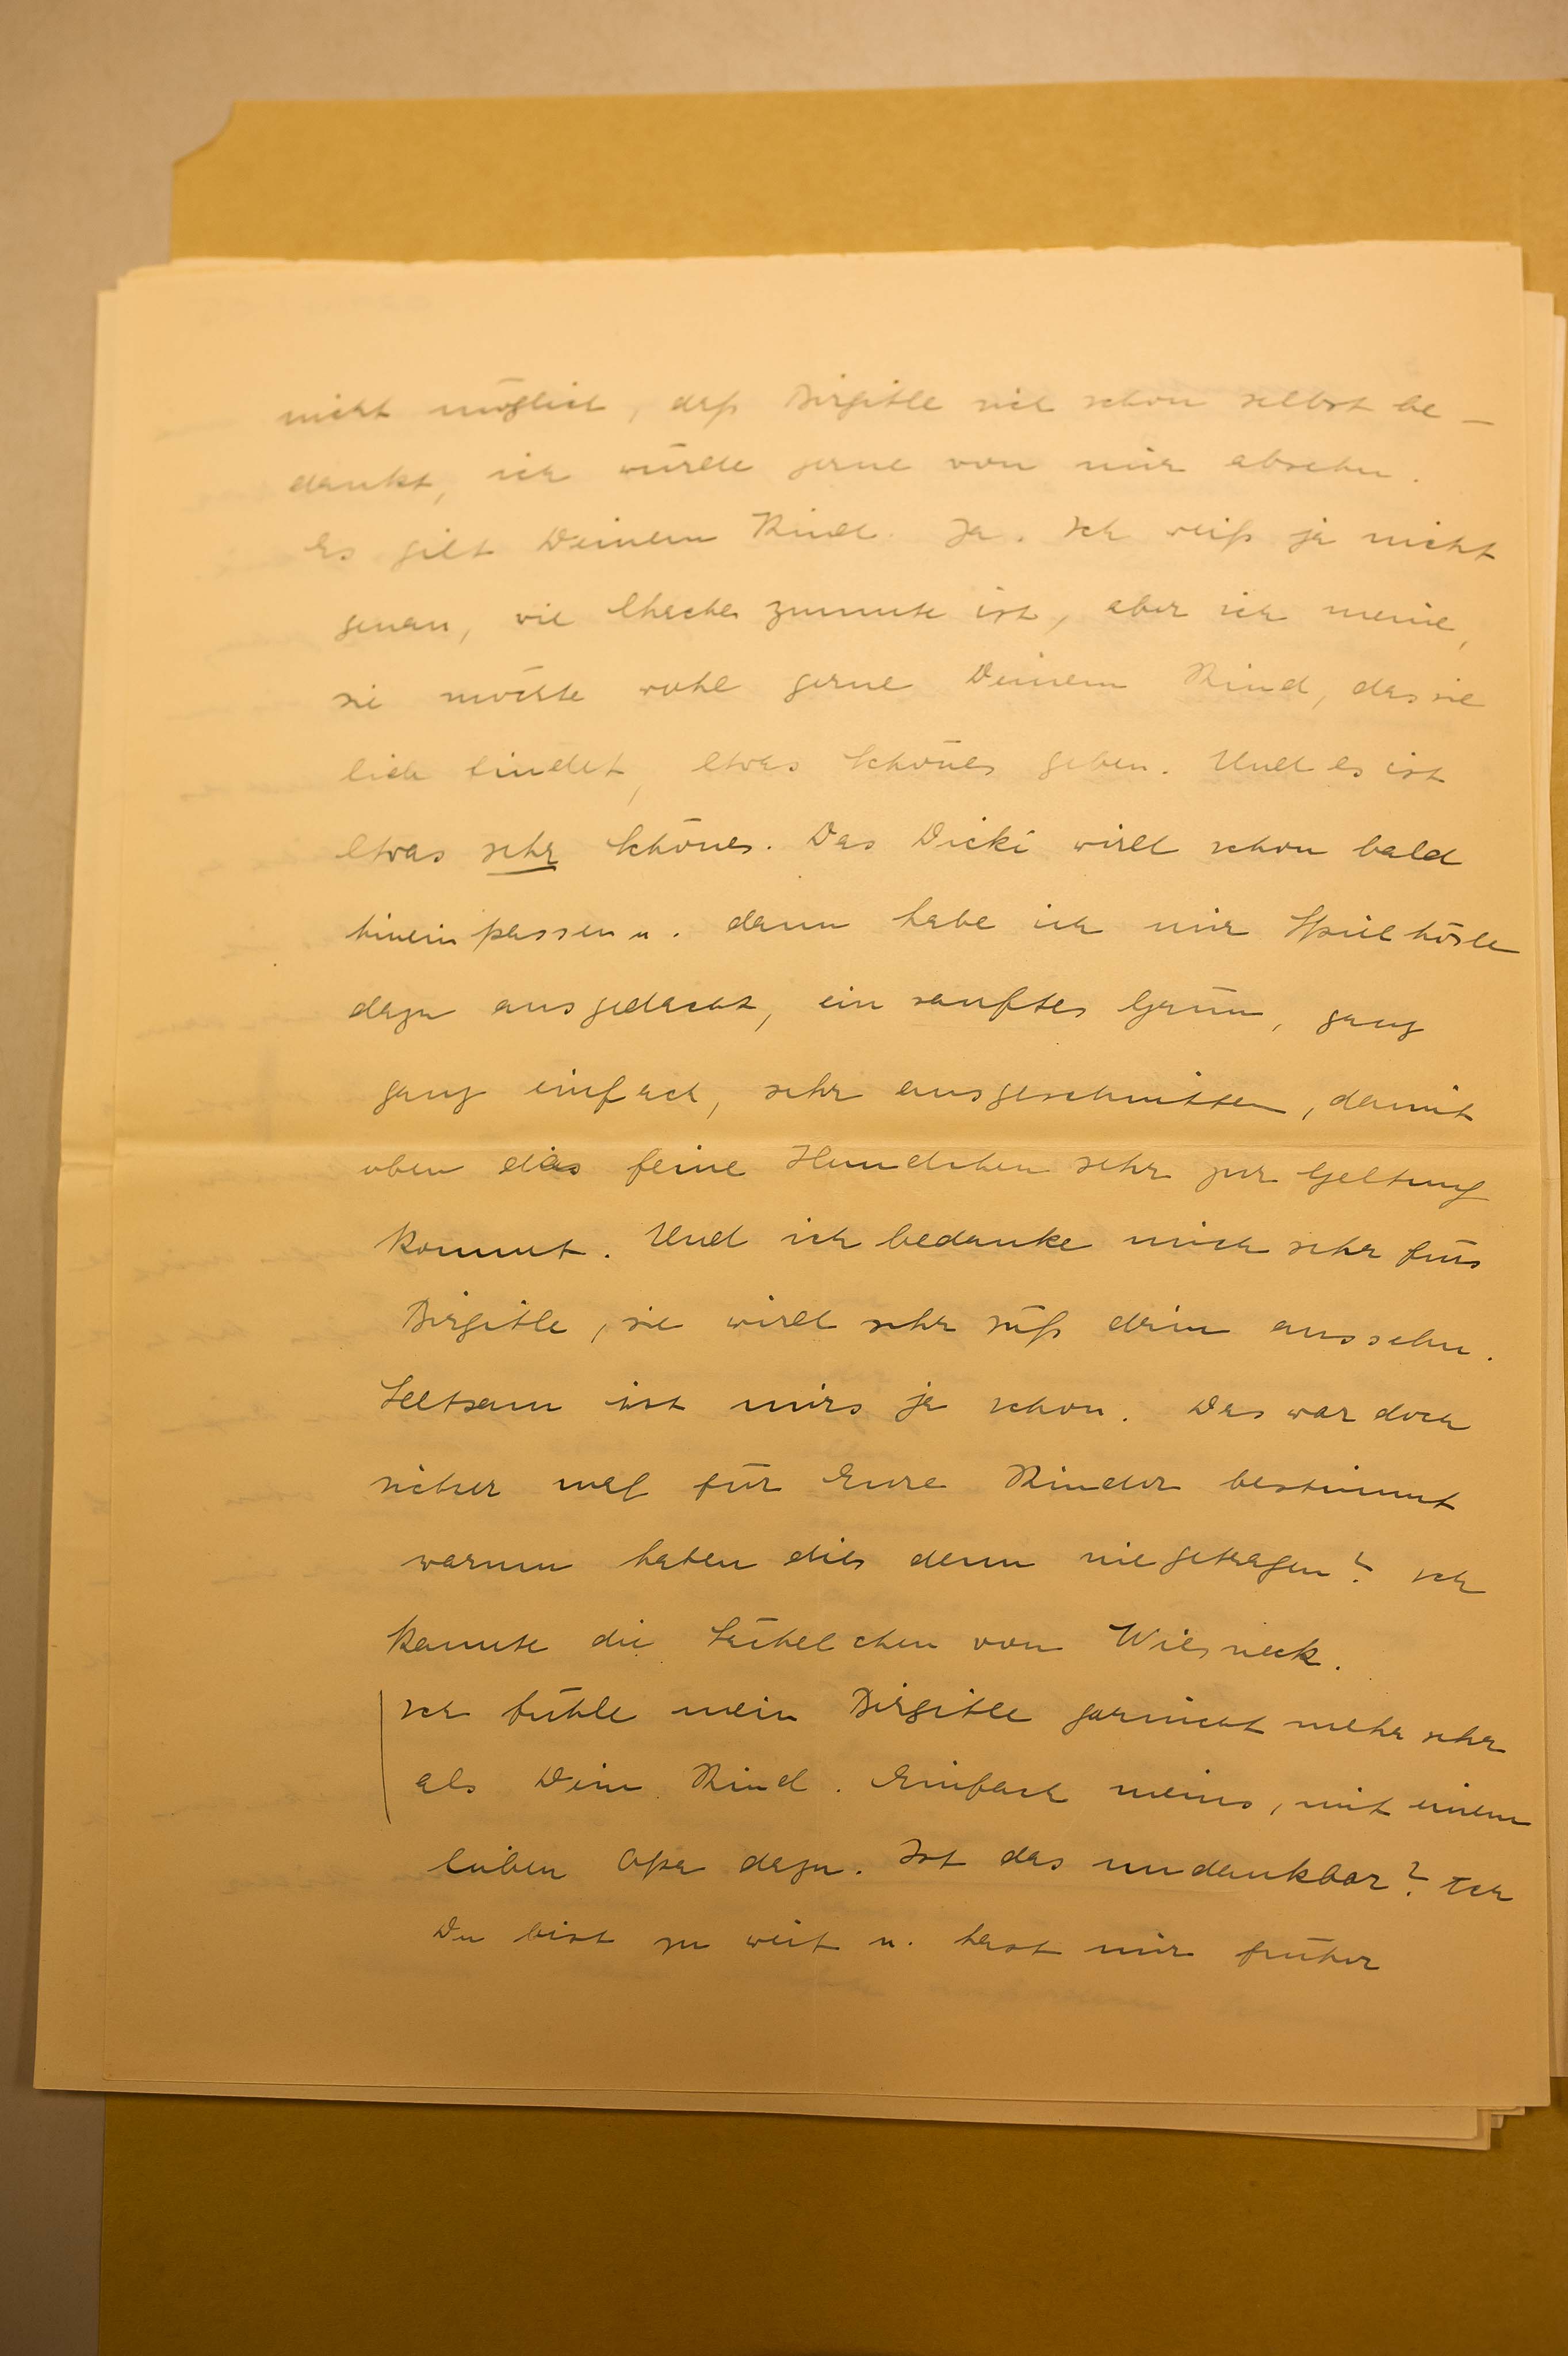 nicht möglich, daß Birgitle sich schon selbst be-
dankt, ich würde gerne von mir absehn.
Es gilt Deinem Kind. Ja. Ich weiß ja nicht
genau, wie zumute ist, aber ich meine,
sie möchte wohl gerne Deinem Kind, das sie
lieb findet, etwas Schönes geben. Und es ist
etwas sehr Schönes. Das Dicki wird schon bald
hinein passen u. dann habe ich mir Spielhösle
dazu ausgedacht, ein sanftes Grün, ganz
ganz einfach, sehr ausgeschnitten, damit
oben das feine Hemdchen sehr zur Geltung
kommt. Und ich bedanke mich sehr fürs
Birgitle, sie wird sehr süß drin aussehn.
Seltsam ist mirs ja schon. Das war doch
sicher mal für Eure Kinder bestimmt
warum haben dies denn nie getragen? Ich
kannte die Sächelchen von Wiesneck.
Ich fühle mein Birgitle garnicht mehr sehr
als Dein Kind. Einfach meins, mit einem
lieben Opa dazu. Ist das undankbar? Ach
Du bist zu weit u. hast mir früher